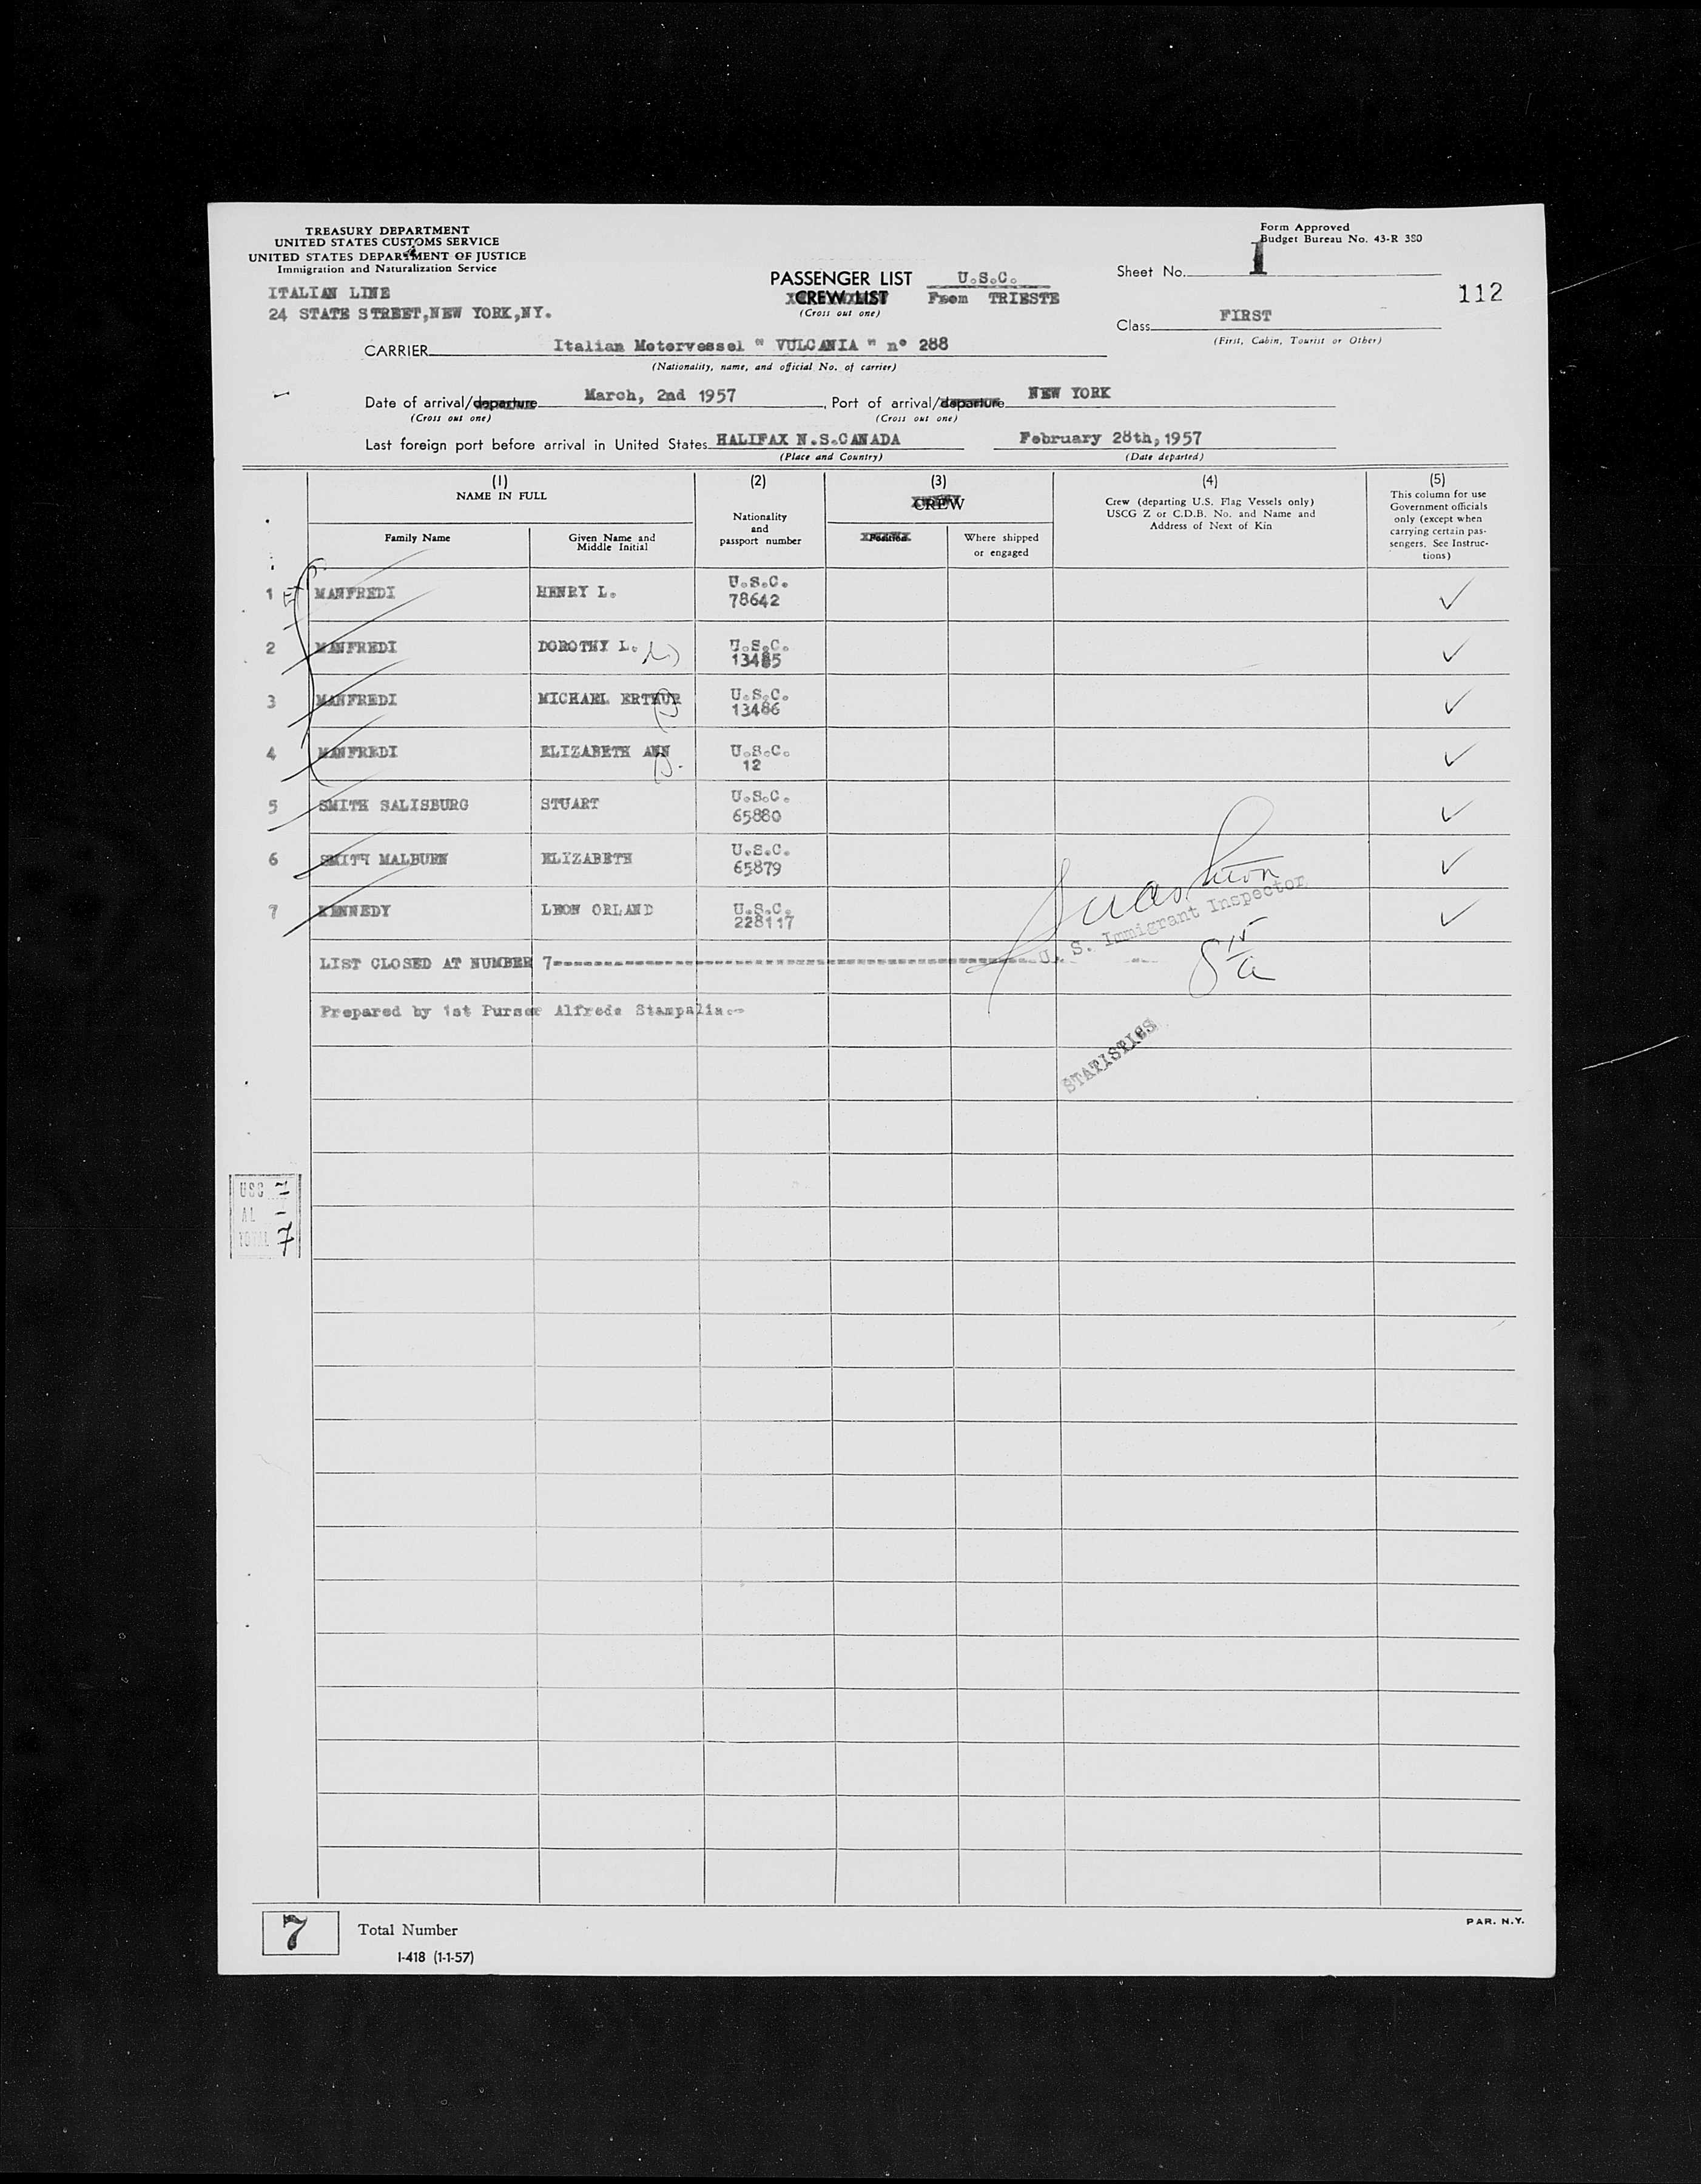 TREASURY DEPARTMENT
UNITED STATES CUSTOMS SERVICE
UNITED STATES DEPARTMENT OF JUSTICE
Immigration and Naturalization Service
ITALIAN LINE
24 STATE STREET,NEW YORK,NY.
PASSENGER LIST U.S.C.
CREW LIST From TRIESTE
(Cross out one)
Form Approved
Budget Bureau No. 43-R 380
Sheet No. 1
112
Class FIRST
(First, Cabin, Tourist or Other)
CARRIER Italian Motorvessel " VULCANIA " n° 288
(Nationality, name, and official No. of carrier)
Date of arrival/departure March, 2nd 1957, Port of arrival/departure NEW YORK
(Cross out one) (Cross out one)
Last foreign port before arrival in United States HALIFAX N.S.CANADA February 28th,1957
(Place and Country) (Date departed)
(1) (2) (3) (4) (5)
NAME IN FULL
Family Name
Given Name and
Middle Initial
Nationality
and
passport number
CREW
Position
Where shipped
or engaged
Crew (departing U.S. Flag Vessels only)
USCG Z or C.D.B. No. and Name and
Address of Next of Kin
This column for use
Government officials
only (except when
carrying certain pas-
sengers. See Instruc-
tions)
1 MANFREDI HENRY L. U.S.C. 78642 ✓
2 MANFREDI DOROTHY L. U.S.C. 13485 ✓
3 MANFREDI MICHAEL ERTHUR U.S.C. 13486 ✓
4 MANFREDI ELIZABETH ANN U.S.C. 12 ✓
5 SMITH SALISBURG STUART U.S.C. 65880 ✓
6 SMITH MALBURN ELIZABETH U.S.C. 65879 ✓
7 KENNEDY LEON ORLAND U.S.C. 228117 ✓
U. S. Immigrant Inspector
LIST CLOSED AT NUMBER 7
Prepared by 1st Purser Alfredo Stampalia.-
STATISTICS
USC 7
AL -
TOTAL 7
7 Total Number
I-418 (1-1-57)
PAR. N.Y.